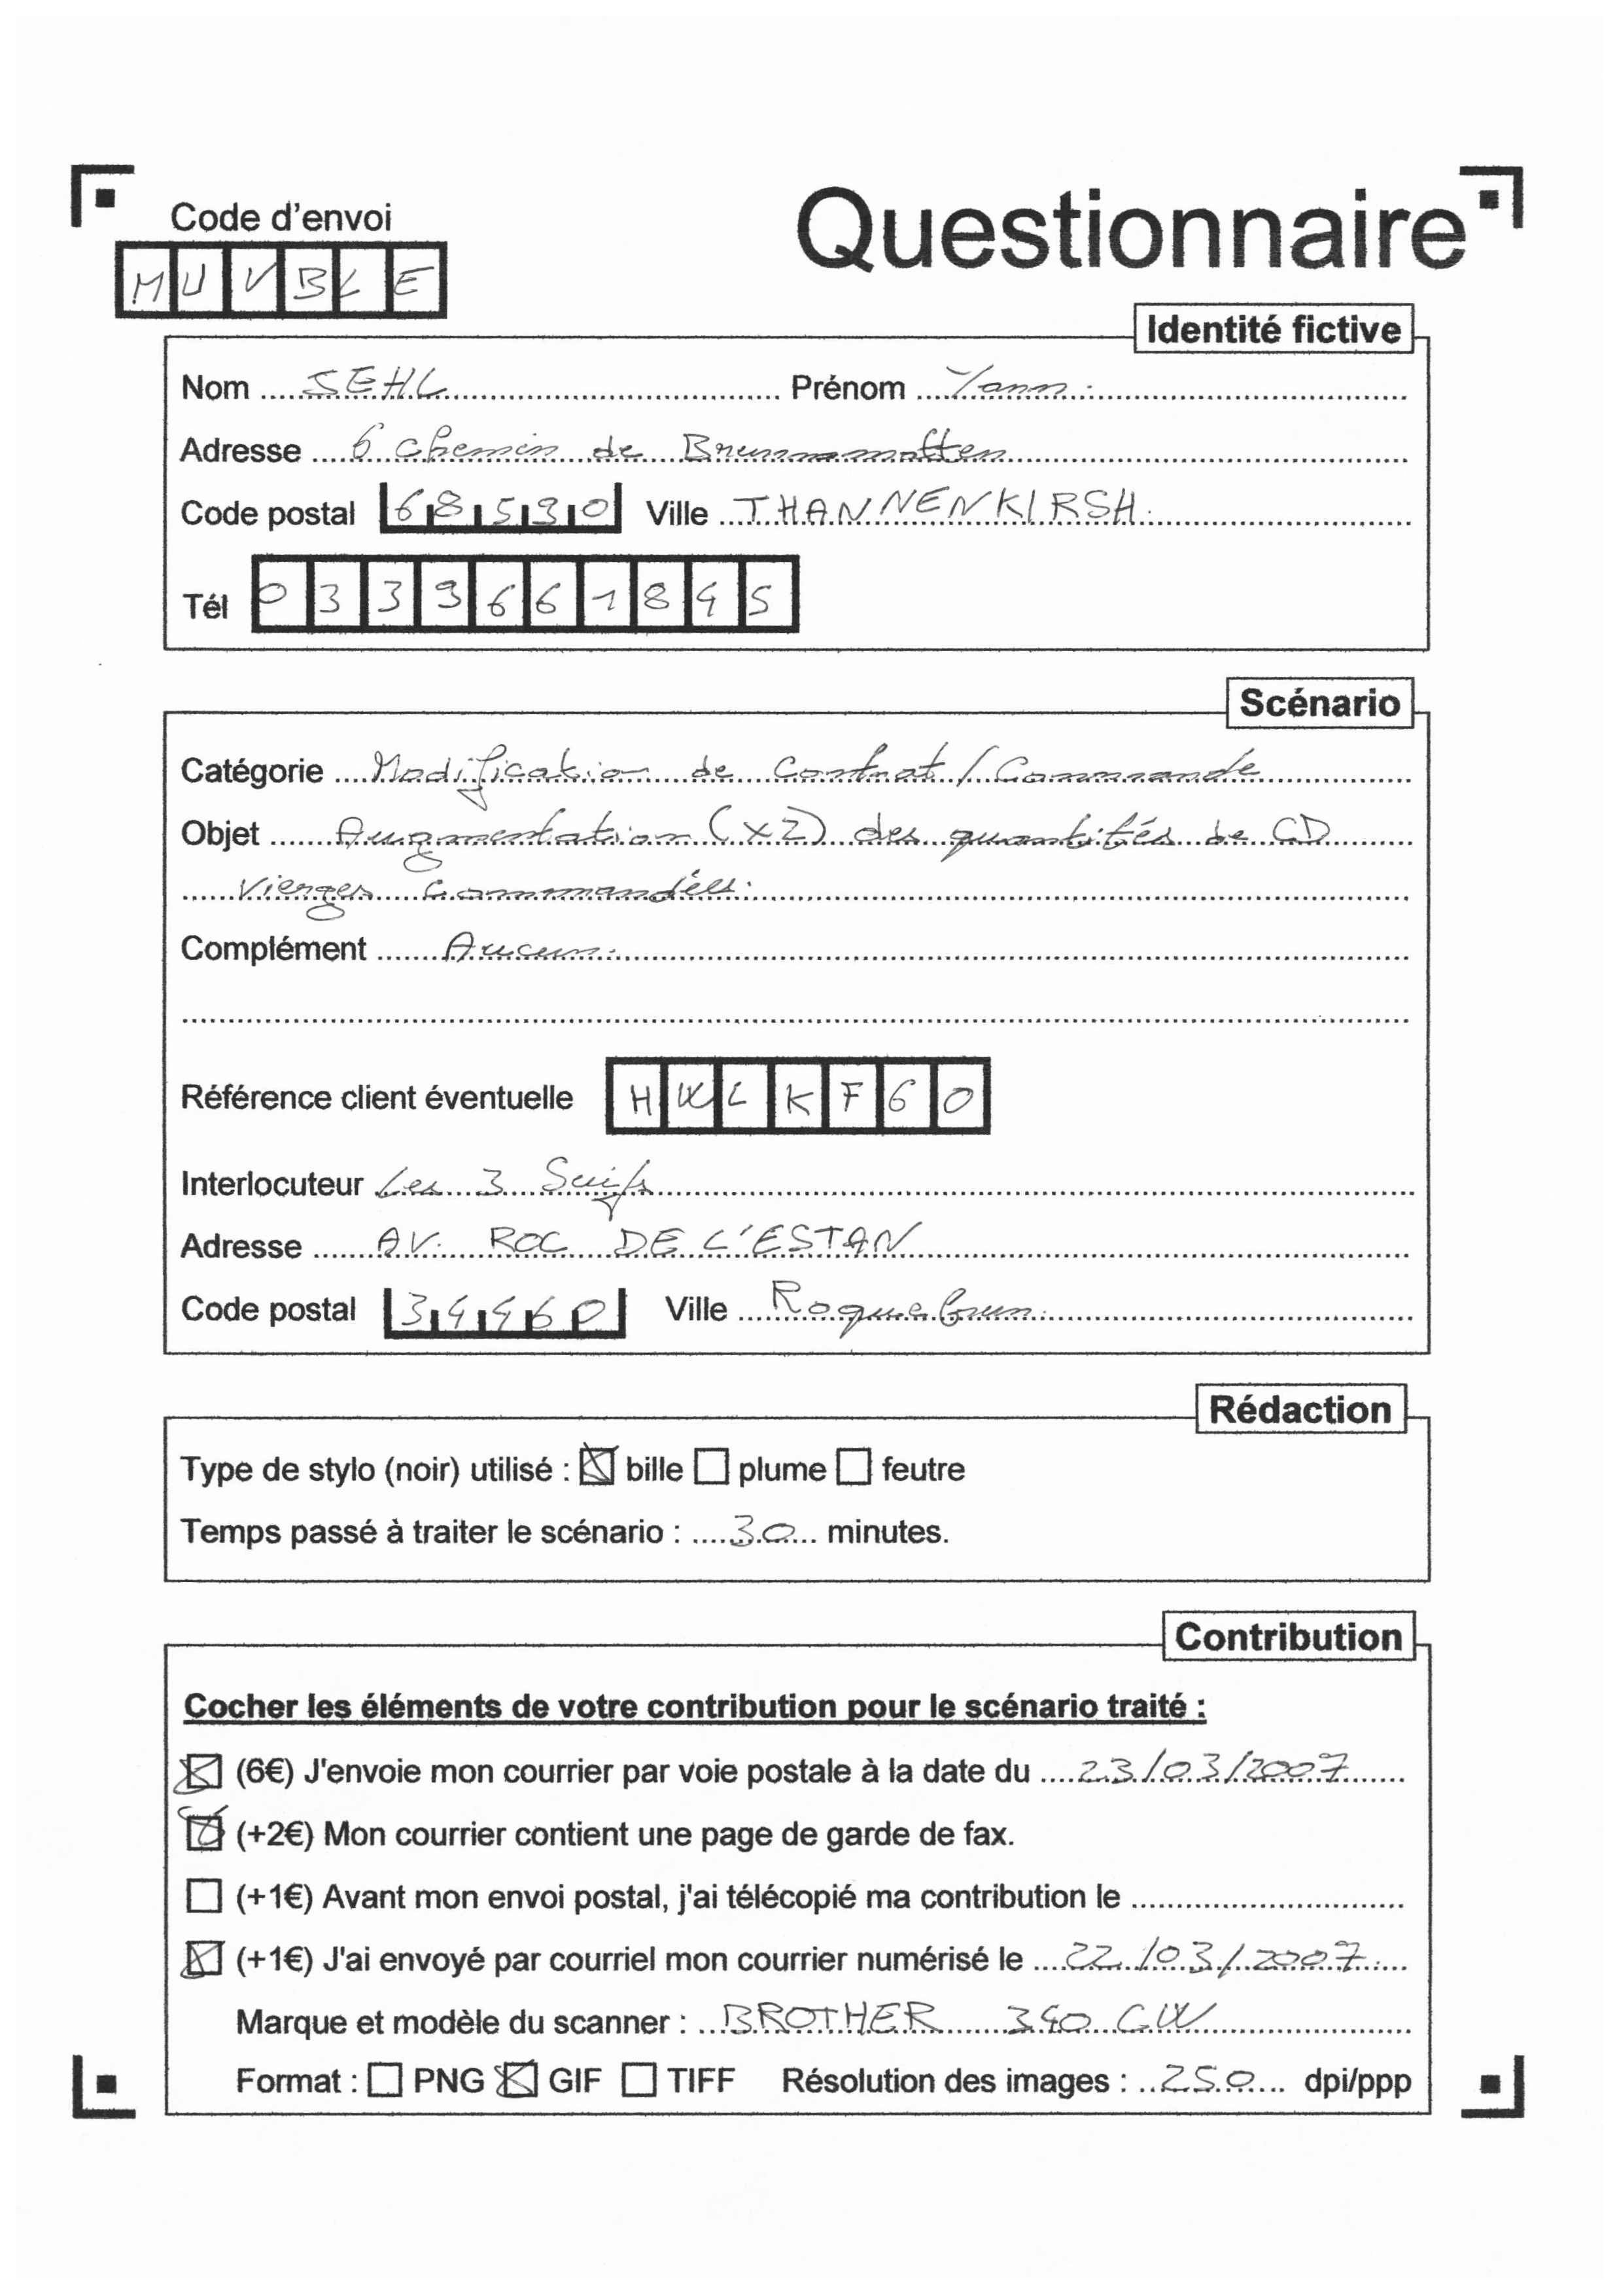 Code d'envoi
MUVBLE
Questionnaire
Identité fictive
Nom SEHL Prénom Yann.
Adresse 6 chemin de Brunnmatten
Code postal 68590 Ville THANNENKIRSH.
Tél 0339661845
Scénario
Catégorie Modification de Contrat / Commande
Objet Augmentation (x2) des quantités de CD
Vierges Commandées.
Complément Aucun.
Référence client éventuelle HWLKF60
Interlocuteur Les 3 Suifs
Adresse AV. ROC DE L'ESTAN
Code postal 34460 Ville Roquebrun.
Rédaction
Type de stylo (noir) utilisé : ☒ bille ☐ plume ☐ feutre
Temps passé à traiter le scénario : 30 minutes.
Contribution
Cocher les éléments de votre contribution pour le scénario traité :
☒ (6€) J'envoie mon courrier par voie postale à la date du 23/03/2007
☒ (+2€) Mon courrier contient une page de garde de fax.
☐ (+1€) Avant mon envoi postal, j'ai télécopié ma contribution le
☒ (+1€) J'ai envoyé par courriel mon courrier numérisé le 22/03/2007.
Marque et modèle du scanner : BROTHER 340 CW
Format : ☐ PNG ☒ GIF ☐ TIFF Résolution des images : 250 dpi/ppp